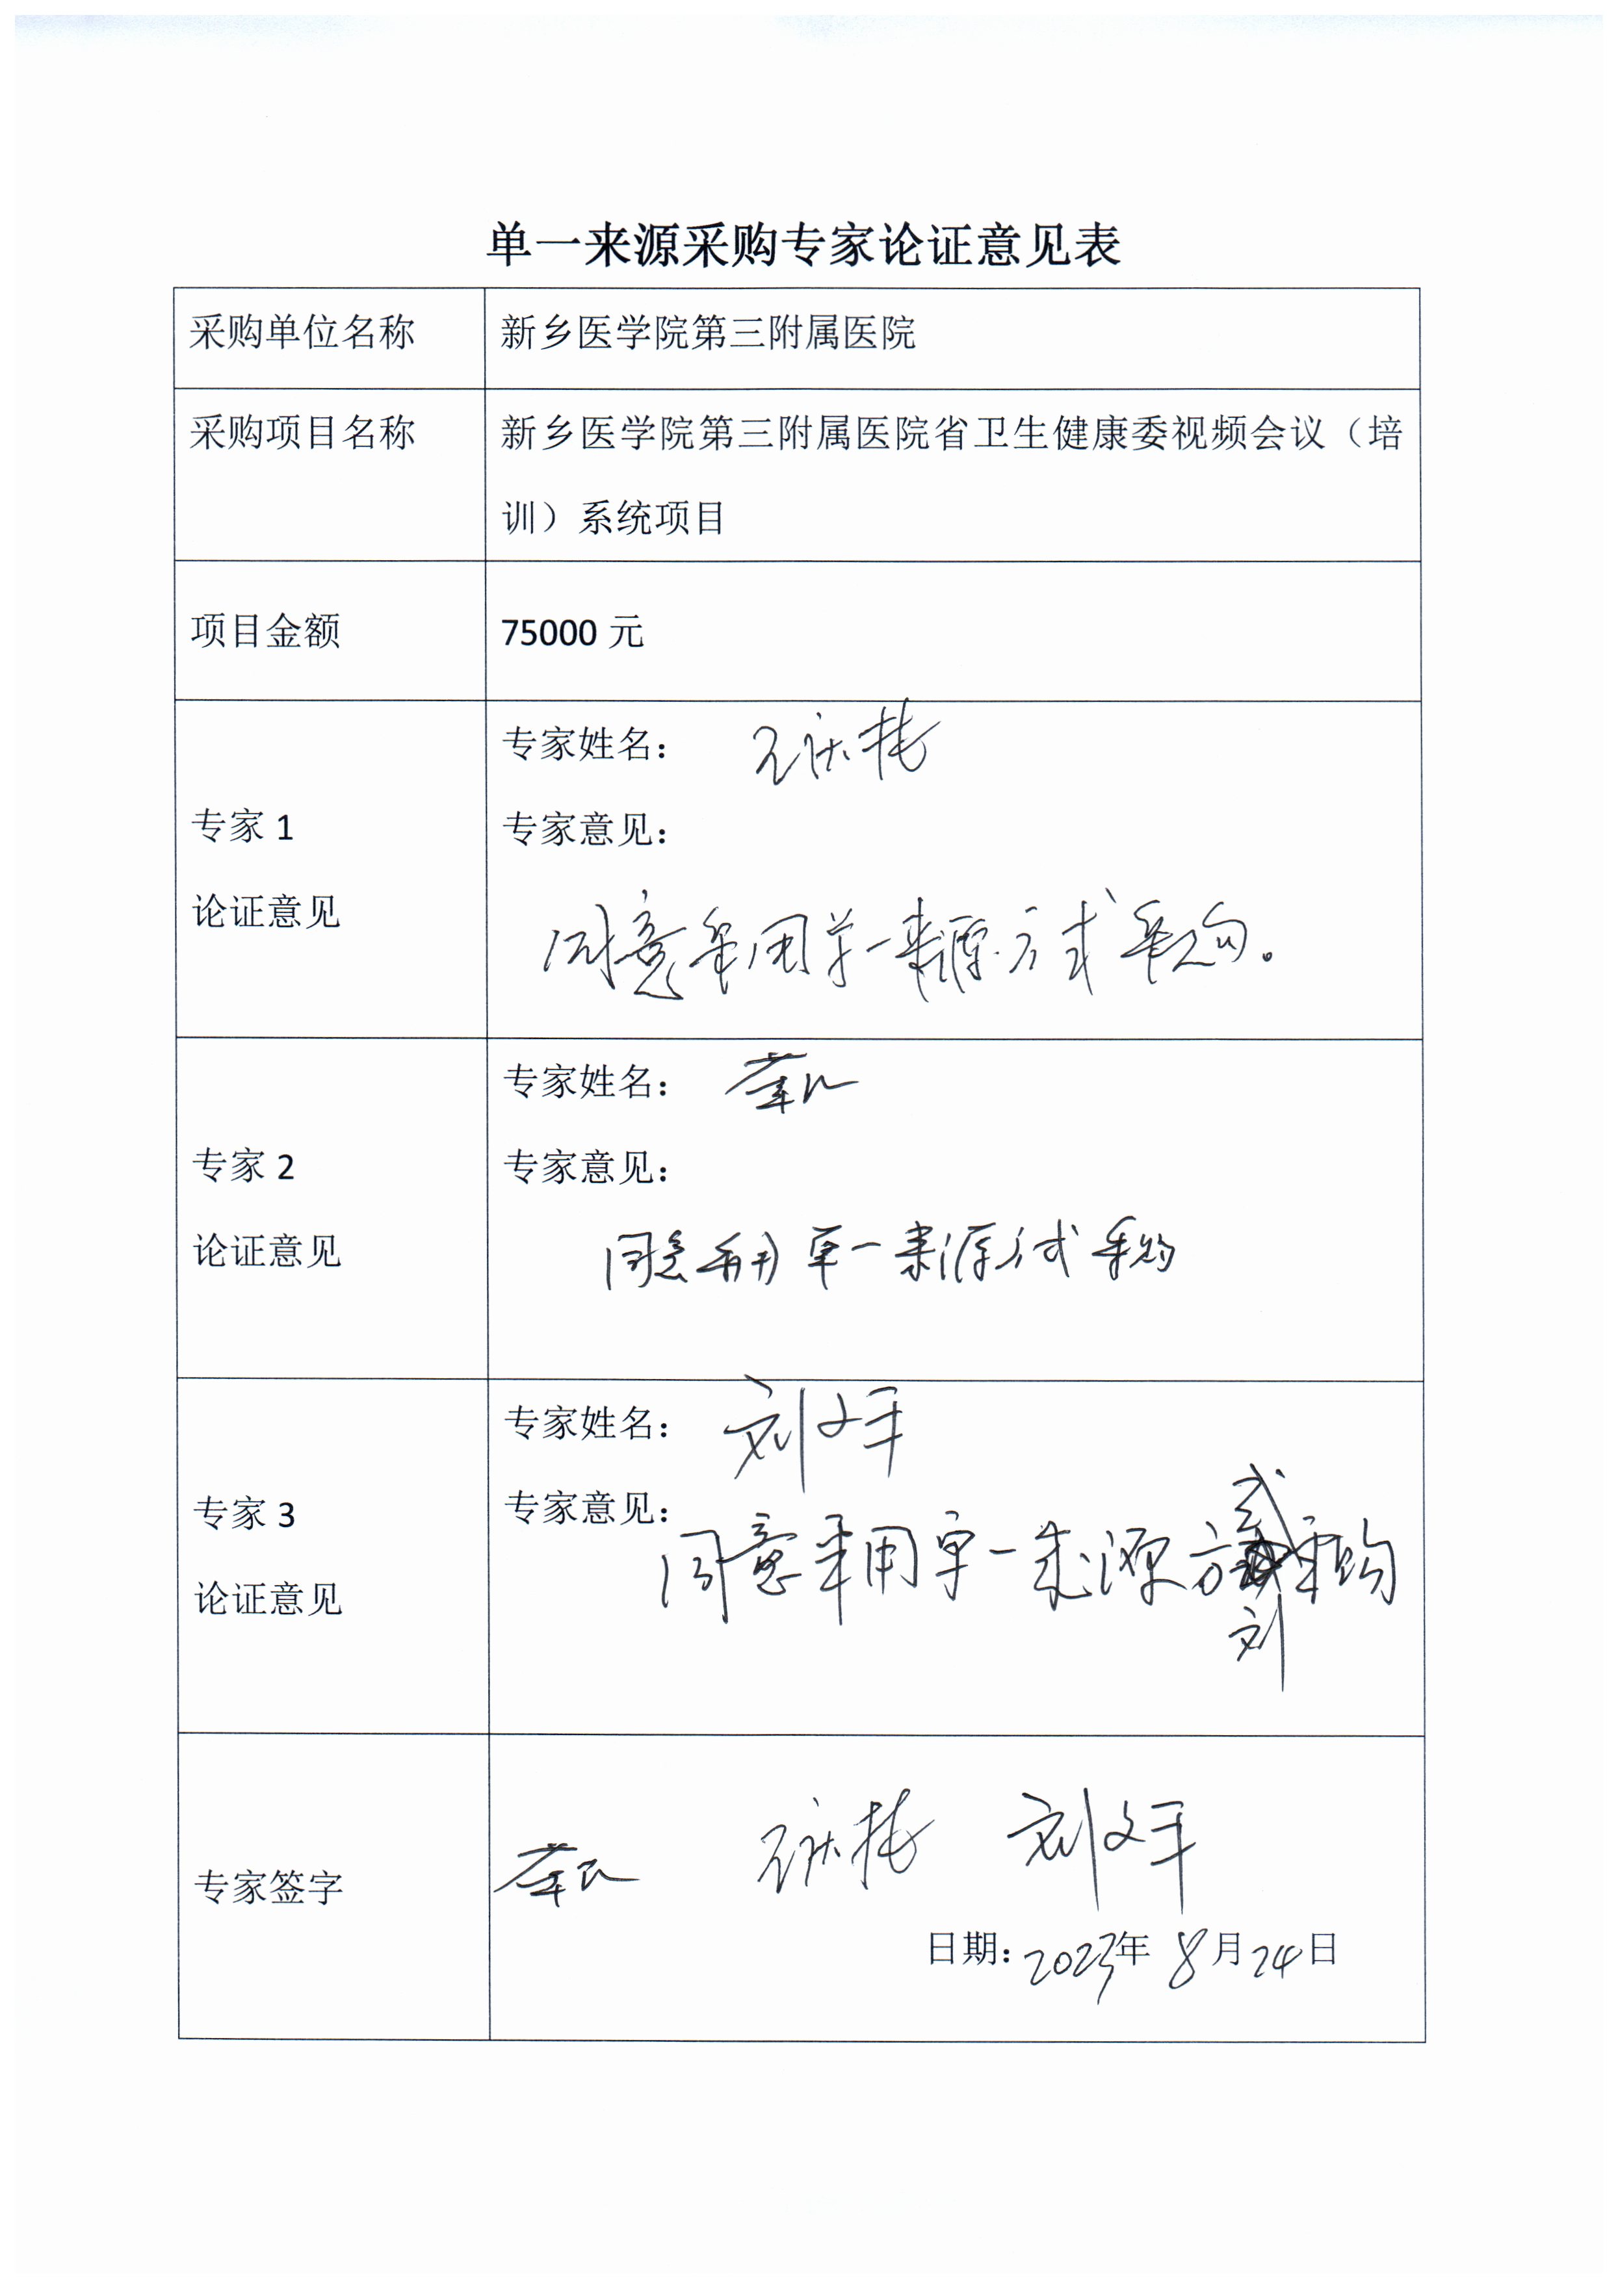 单一来源采购专家论证意见表
采购单位名称
新乡医学院第三附属医院
采购项目名称
新乡医学院第三附属医院省卫生健康委视频会议（培
训）系统项目
项目金额
75000 元
专家 1
论证意见
专家姓名：
专家意见：
同意采用单一来源方式采购。
专家 2
论证意见
专家姓名：
专家意见：
同意采用单一来源方式采购
专家 3
论证意见
专家姓名：刘文平
专家意见：
同意采用单一来源方式采购
刘
专家签字
刘文平
日期：2023年 8月24日